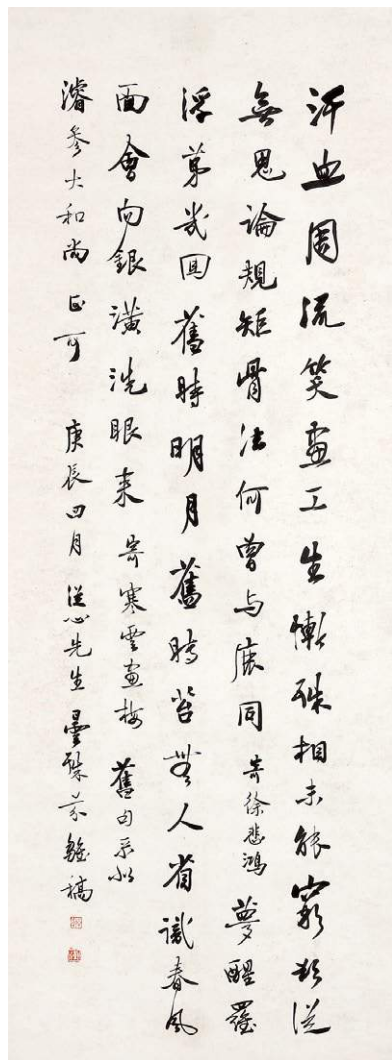 汗血周流笑畫工生慚殊相未能窮欲從
無思論規矩骨法何曾与同寄徐悲鴻夢醒羅
浮第幾回舊時明月舊時苔無人省識春風
面會向銀潢洗眼來寄寒雲畫梅舊句录似
濬參大和尚正可庚辰四月從心先生曇殊稿